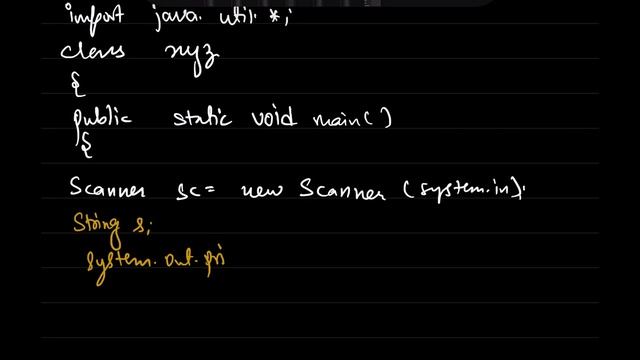 import java. util. *;
class xyz
{
public static void main()
{
Scanner sc= new Scanner (system.in);
String s;
system. out. pri